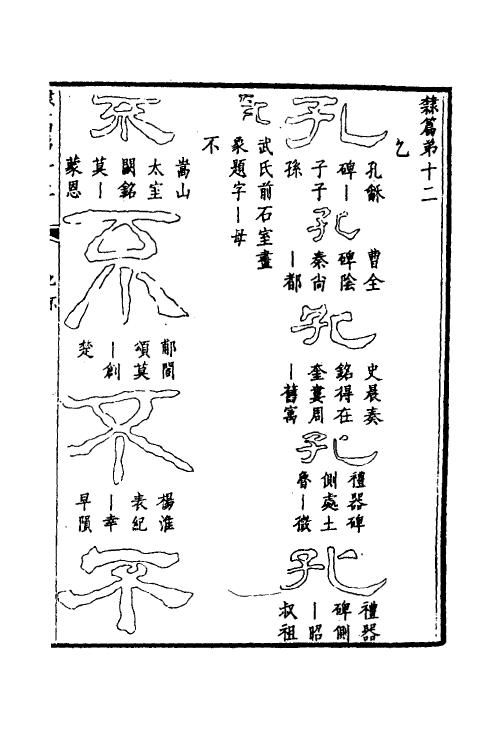 隸篇弟十二
乞
孔
孔龢
碑｜
子子
孫
孔
曹全
碑陰
秦尚
｜都
孔
史晨奏
銘得在
奎婁周
｜舊寓
孔
禮器碑
側處土
魯｜徵
孔
禮器
碑側
｜昭
叔祖
孔
武氏前石室畫
象題字｜母
不
不
嵩山
太室
闕銘
莫｜
蒙恩
不
郙閣
頌莫
｜創
楚
不
楊淮
表紀
｜幸
早隕
不